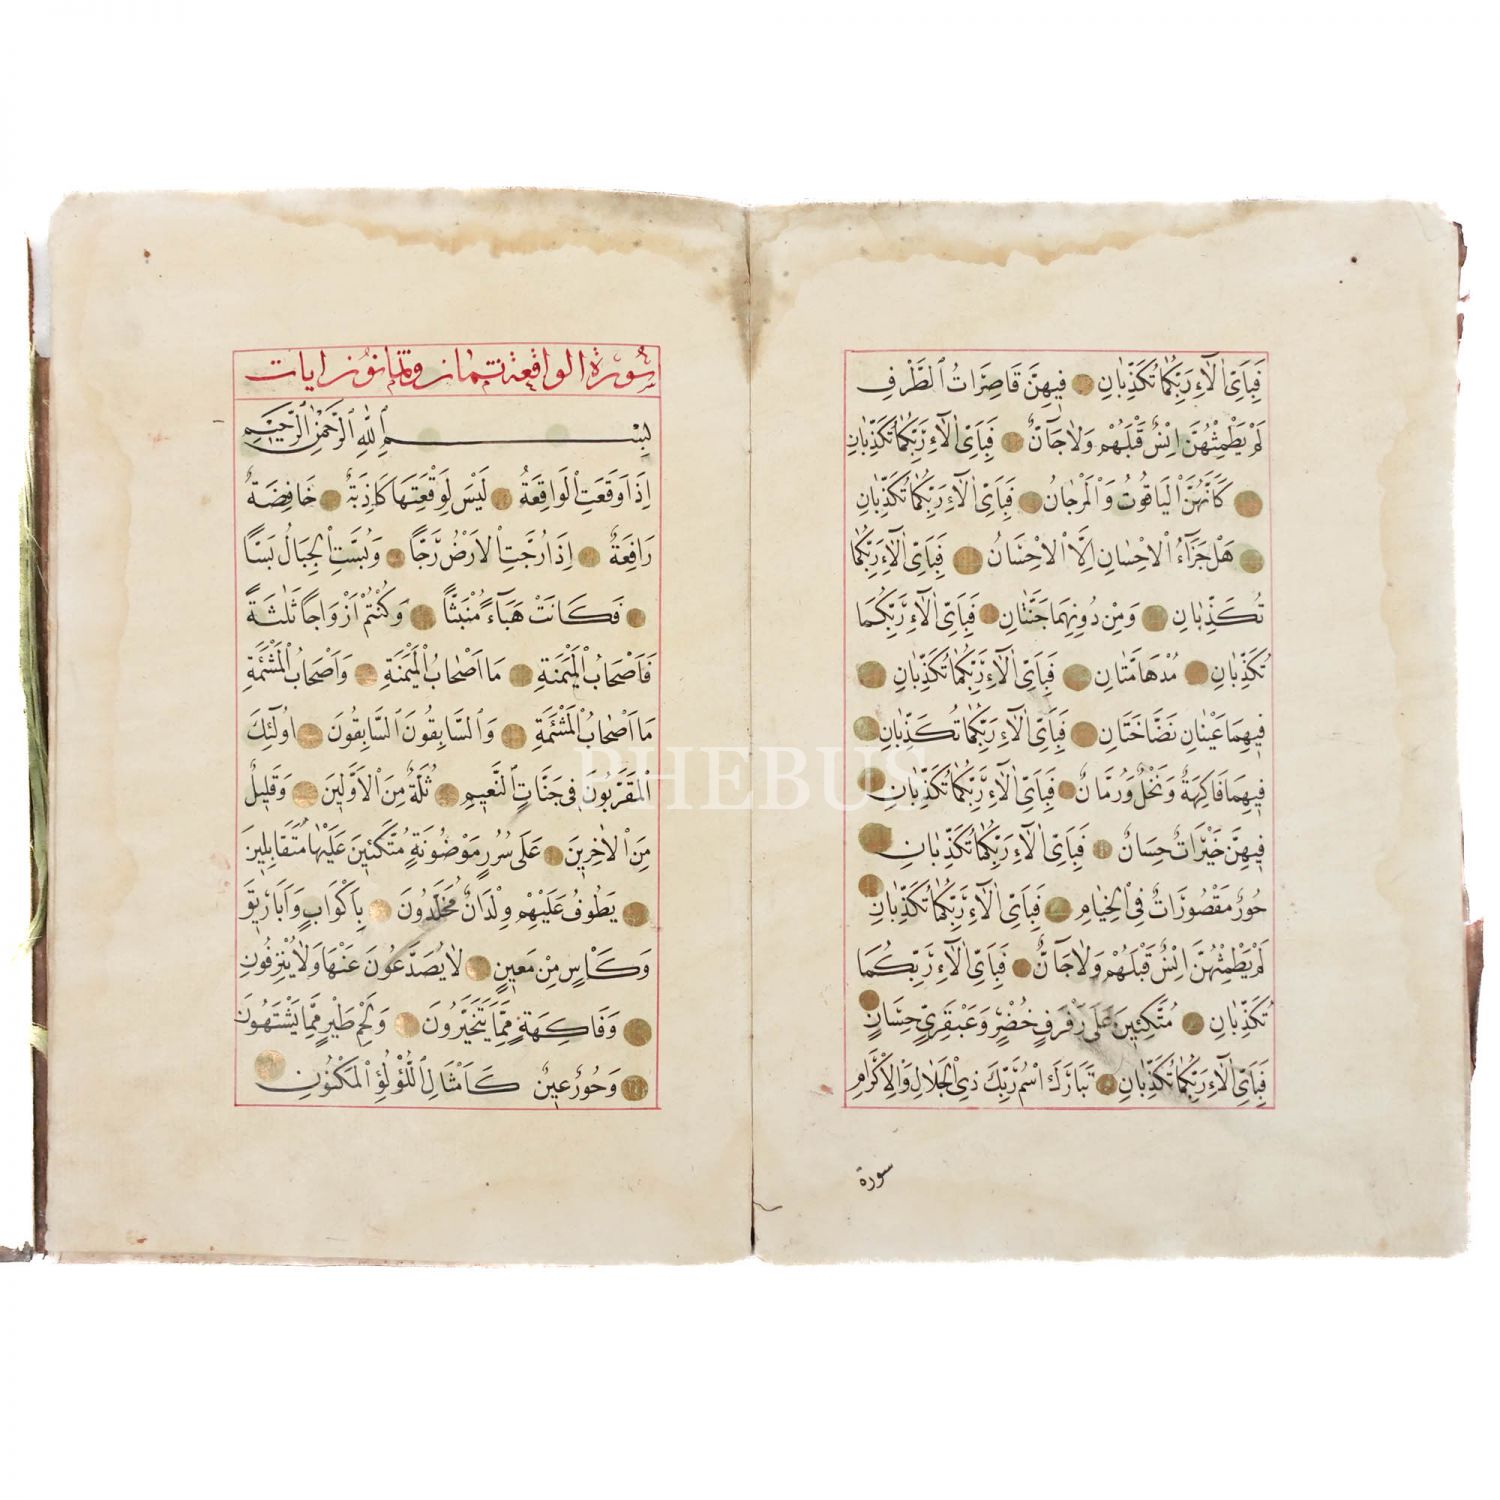 فَبِاَىِّ اٰلَآءِ رَبِّكُمَا تُكَذِّبَانِ فِيهِنَّ قَاصِرَاتُ الطَّرْفِ
لَمْ يَطْمِثْهُنَّ اِنْسٌ قَبْلَهُمْ وَلَا جَآنٌّ فَبِاَىِّ اٰلَآءِ رَبِّكُمَا تُكَذِّبَانِ
كَاَنَّهُنَّ الْيَاقُوتُ وَالْمَرْجَانُ فَبِاَىِّ اٰلَآءِ رَبِّكُمَا تُكَذِّبَانِ
هَلْ جَزَآءُ الْاِحْسَانِ اِلَّا الْاِحْسَانُ فَبِاَىِّ اٰلَآءِ رَبِّكُمَا
تُكَذِّبَانِ وَمِنْ دُونِهِمَا جَنَّتَانِ فَبِاَىِّ اٰلَآءِ رَبِّكُمَا
تُكَذِّبَانِ مُدْهَآمَّتَانِ فَبِاَىِّ اٰلَآءِ رَبِّكُمَا تُكَذِّبَانِ
فِيهِمَا عَيْنَانِ نَضَّاخَتَانِ فَبِاَىِّ اٰلَآءِ رَبِّكُمَا تُكَذِّبَانِ
فِيهِمَا فَاكِهَةٌ وَنَخْلٌ وَرُمَّانٌ فَبِاَىِّ اٰلَآءِ رَبِّكُمَا تُكَذِّبَانِ
فِيهِنَّ خَيْرَاتٌ حِسَانٌ فَبِاَىِّ اٰلَآءِ رَبِّكُمَا تُكَذِّبَانِ
حُورٌ مَقْصُورَاتٌ فِى الْخِيَامِ فَبِاَىِّ اٰلَآءِ رَبِّكُمَا تُكَذِّبَانِ
لَمْ يَطْمِثْهُنَّ اِنْسٌ قَبْلَهُمْ وَلَا جَآنٌّ فَبِاَىِّ اٰلَآءِ رَبِّكُمَا
تُكَذِّبَانِ مُتَّكِئِينَ عَلٰى رَفْرَفٍ خُضْرٍ وَعَبْقَرِىٍّ حِسَانٍ
فَبِاَىِّ اٰلَآءِ رَبِّكُمَا تُكَذِّبَانِ تَبَارَكَ اسْمُ رَبِّكَ ذِى الْجَلَالِ وَالْاِكْرَامِ
سورة
سُورَةُ الْوَاقِعَةِ ثمان وثمانون ايات
بِسْمِ اللّٰهِ الرَّحْمٰنِ الرَّحِيمِ
اِذَا وَقَعَتِ الْوَاقِعَةُ لَيْسَ لِوَقْعَتِهَا كَاذِبَةٌ خَافِضَةٌ
رَافِعَةٌ اِذَا رُجَّتِ الْاَرْضُ رَجًّا وَبُسَّتِ الْجِبَالُ بَسًّا
فَكَانَتْ هَبَآءً مُنْبَثًّا وَكُنْتُمْ اَزْوَاجًا ثَلٰثَةً
فَاَصْحَابُ الْمَيْمَنَةِ مَا اَصْحَابُ الْمَيْمَنَةِ وَاَصْحَابُ الْمَشْئَمَةِ
مَا اَصْحَابُ الْمَشْئَمَةِ وَالسَّابِقُونَ السَّابِقُونَ اُولٰئِكَ
الْمُقَرَّبُونَ فِى جَنَّاتِ النَّعِيمِ ثُلَّةٌ مِنَ الْاَوَّلِينَ وَقَلِيلٌ
مِنَ الْاٰخِرِينَ عَلٰى سُرُرٍ مَوْضُونَةٍ مُتَّكِئِينَ عَلَيْهَا مُتَقَابِلِينَ
يَطُوفُ عَلَيْهِمْ وِلْدَانٌ مُخَلَّدُونَ بِاَكْوَابٍ وَاَبَارِيقَ
وَكَاْسٍ مِنْ مَعِينٍ لَا يُصَدَّعُونَ عَنْهَا وَلَا يُنْزِفُونَ
وَفَاكِهَةٍ مِمَّا يَتَخَيَّرُونَ وَلَحْمِ طَيْرٍ مِمَّا يَشْتَهُونَ
وَحُورٌ عِينٌ كَاَمْثَالِ اللُّؤْلُؤِ الْمَكْنُونِ
PHEBUS